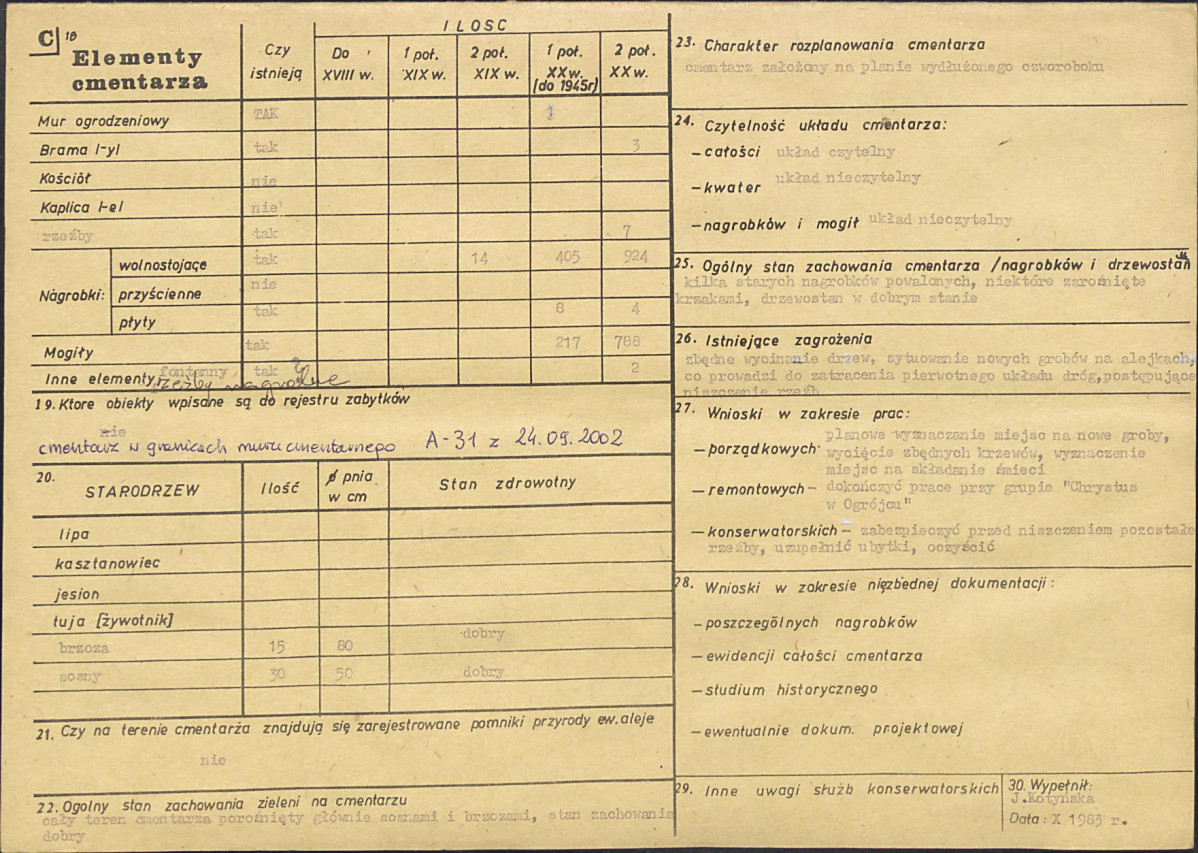 C 18
Elementy cmentarza
Czy istnieją
ILOSC
Do XVIII w.
1 poł. XIX w.
2 poł. XIX w.
1 poł. XX w. (do 1945r)
2 poł. XX w.
Mur ogrodzeniowy TAK 1
Brama 1-yl tak 3
Kościół nie
Kaplica 1-el nie
rzeźby tak 7
Nagrobki: wolnostojące tak 14 405 924
przyścienne nie
płyty tak 8 4
Mogiły tak 217 788
Inne elementy: fontanny tak 2
rzeźby nagrobne
19. Ktore obiekty wpisane są do rejestru zabytków
nie
cmentarz w granicach muru cmentarnego A-31 z 24.09.2002
20. STARODRZEW Ilość ø pnia w cm Stan zdrowotny
lipa
kasztanowiec
jesion
tuja [żywotnik]
brzoza 15 80 dobry
sosny 30 50 dobry
21. Czy na terenie cmentarza znajdują się zarejestrowane pomniki przyrody ew. aleje
nie
22. Ogolny stan zachowania zieleni na cmentarzu
cały teren cmentarza porośnięty głównie sosnami i brzozami, stan zachowania
dobry
23. Charakter rozplanowania cmentarza
cmentarz założony na planie wydłużonego czworoboku
24. Czytelność układu cmentarza:
– całości układ czytelny
– kwater układ nieczytelny
– nagrobków i mogił układ nieczytelny
25. Ogólny stan zachowania cmentarza /nagrobków i drzewostan
kilka starych nagrobków powalonych, niektóre zarośnięte
krzakami, drzewostan w dobrym stanie
26. Istniejące zagrożenia
zbędne wycinanie drzew, sytuowanie nowych grobów na alejkach,
co prowadzi do zatracenia pierwotnego układu dróg, postępujące
niszczenie rzeźb
27. Wnioski w zakresie prac:
– porządkowych planowe wyznaczanie miejsc na nowe groby,
wycięcie zbędnych krzewów, wyznaczenie
miejsc na składanie śmieci
– remontowych – dokończyć prace przy grupie "Chrystus
w Ogrójcu"
– konserwatorskich – zabezpieczyć przed niszczeniem pozostałe
rzeźby, uzupełnić ubytki, oczyścić
28. Wnioski w zakresie niezbędnej dokumentacji:
– poszczególnych nagrobków
– ewidencji całości cmentarza
– studium historycznego
– ewentualnie dokum. projektowej
29. Inne uwagi służb konserwatorskich
30. Wypełnił:
J.Kotyńska
Data: X 1983 r.